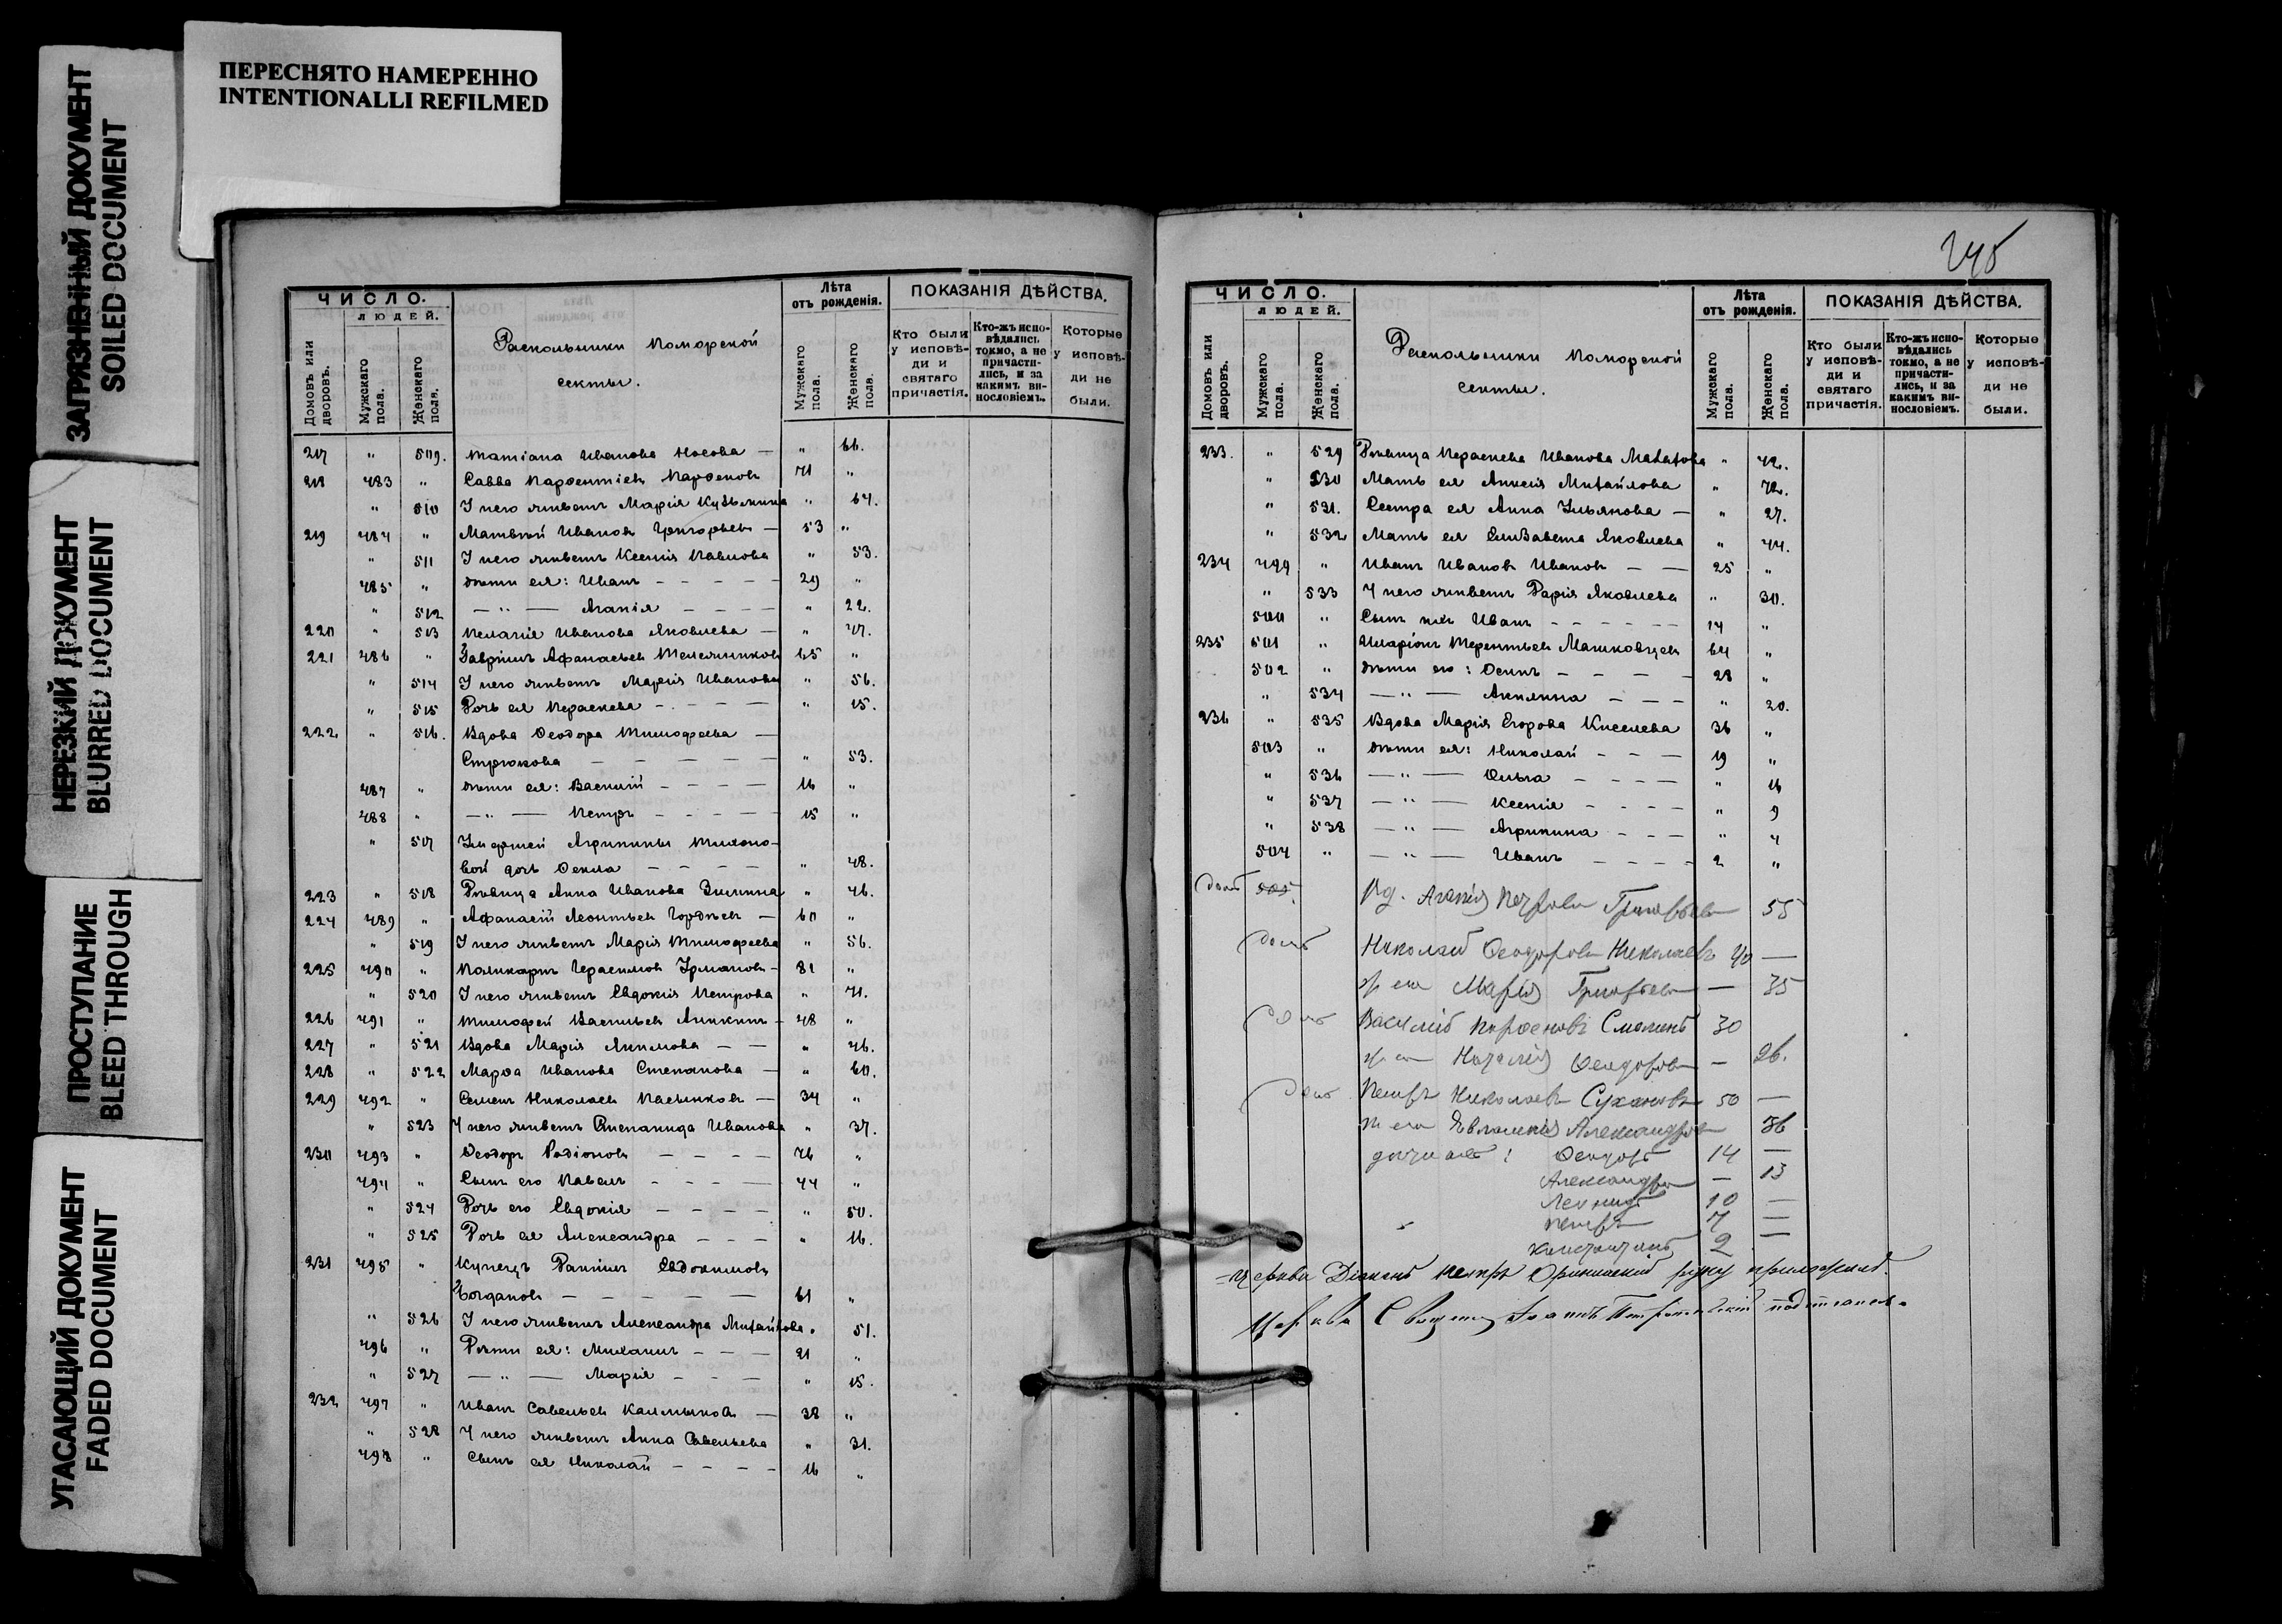 ПЕРЕСНЯТО НАМЕРЕННО
INTENTIONALLI REFILMED
ЗАГРЯЗНЕННЫЙ ДОКУМЕНТ
SOILED DOCUMENT
НЕРЕЗКИЙ ДОКУМЕНТ
BLURRED DOCUMENT
ПРОСТУПАНИЕ
BLEED THROUGH
УГАСАЮЩИЙ ДОКУМЕНТ
FADED DOCUMENT
ЧИСЛО.
ЛЮДЕЙ.
Домовъ или дворовъ.
Мужскаго пола.
Женскаго пола.
Раскольники Поморской
секты.
Лѣта
отъ рожденія.
Мужскаго пола.
Женскаго пола.
ПОКАЗАНІЯ ДѢЙСТВА.
Кто были у исповѣди и святаго причастія.
Кто-жъ исповѣдались токмо, а не причастились, и за какимъ винословіемъ.
Которые у исповѣди не были.
217 " 509. Татіана Иванова Носова — " 66.
218 483 " Савва Парѳентіевъ Парѳеновъ 71 "
" 510 У него живетъ Марія Кузьмина " 64.
219 484 " Матвѣй Ивановъ Григорьевъ — 53 "
" 511 У него живетъ Ксенія Павлова " 53.
485 " дѣти ея: Иванъ — — — — 29 "
" 512 — " — Агапія — — — — " 22.
220 " 513 Пелагія Иванова Яковлева — " 47.
221 486 " Гавріилъ Афанасьевъ Телятниковъ 65 "
" 514 У него живетъ Марія Иванова " 56.
" 515 Дочь ея Параскева — — — — " 15.
222 " 516. Вдова Ѳеодора Тимофеева —
Стрюкова — — — — — " 53.
487 " дѣти ея: Василій — — — — 16 "
488 " — " — Петръ — — — — 15 "
" 517 Умершей Агрипины Тихоно-
вой дочь Ѳекла — — — — " 48.
223 " 518 Дѣвица Анна Иванова Зимина " 46.
224 489 " Афанасій Леонтьевъ Гордѣевъ — 60 "
" 519 У него живетъ Марія Тимофеева " 56.
225 490 " Поликарпъ Герасимовъ Урмановъ — 81 "
" 520 У него живетъ Евдокія Петрова " 71.
226 491 " Тимофей Васильевъ Аникинъ — 48 "
227 " 521 Вдова Марія Акимова — — " 46.
228 " 522 Марѳа Иванова Степанова — " 60.
229 492 " Семенъ Николаевъ Пасынковъ — 34 "
" 523 У него живетъ Степанида Иванова " 37.
230 493 " Ѳеодоръ Родіоновъ — — — — 76 "
494 " Сынъ его Павелъ — — — — 44 "
" 524 Дочь его Евдокія — — — — " 50.
" 525 Дочь ея Александра — — — " 16.
231 495 " Купецъ Даніилъ Евдокимовъ
Богдановъ — — — — — 61 "
" 526 У него живетъ Александра Михайлова. " 51.
496 " Дѣти ея: Михаилъ — — — 21 "
" 527 — " — Марія — — — " 15.
232 497 " Иванъ Савельевъ Калмыковъ — 38 "
" 528 У него живетъ Анна Савельева " 31.
498 " Сынъ ея Николай — — — — 16 "
245
ЧИСЛО.
ЛЮДЕЙ.
Домовъ или дворовъ.
Мужскаго пола.
Женскаго пола.
Раскольники Поморской
секты.
Лѣта
отъ рожденія.
Мужскаго пола.
Женскаго пола.
ПОКАЗАНІЯ ДѢЙСТВА.
Кто были у исповѣди и святаго причастія.
Кто-жъ исповѣдались токмо, а не причастились, и за какимъ винословіемъ.
Которые у исповѣди не были.
233. " 529 Дѣвица Параскева Иванова " 42.
" 530 Мать ея Михайлова " 72.
" 531. Сестра ея Анна Ульянова — " 27.
" 532 Мать ея Елизавета Яковлева " 44.
234 499 " Иванъ Ивановъ Ивановъ — — 25 "
" 533 У него живетъ Дарія Яковлева " 30.
500 " Сынъ ихъ Иванъ — — — — — 14 "
235 501 " Иларіонъ Терентьевъ Машковцевъ 64 "
502 " дѣти его: Осипъ — — — — 28 "
" 534 — " — Акилина — — — " 20.
236 " 535 Вдова Марія Егорова Киселева 36 "
503 " дѣти ея: Николай — — — 19 "
" 536 — " — Ольга — — — — " 16
" 537 — " — Ксенія — — — — " 9
" 538 — " — Агрипина — — — " 4
504 " — " — Иванъ — — — — 2 "
домъ 505. Вд. Агапія Петрова Григорьева 55
домъ Николай Ѳеодоровъ Николаевъ 40 —
ж его Марія Григорьева — 35
домъ Василій Парѳеновъ Смолинъ 30
ж его Наталія Ѳеодорова — 26.
домъ Петръ Николаевъ Сухановъ 50 —
ж его Евлампія Александрова 36
дѣти ихъ: Ѳеодоръ 14 —
Александра — 13
Леонидъ 10 —
Петръ 7 —
Константинъ 2 —
церкви Діаконъ Петръ руку приложилъ.
Церкви Священ